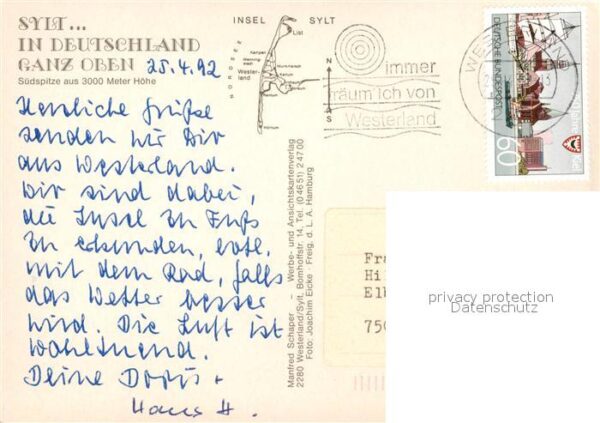 SYLT...
IN DEUTSCHLAND
GANZ OBEN
25.4.92
Südspitze aus 3000 Meter Höhe
Herzliche Grüße
senden wir Dir
aus Westerland.
Wir sind dabei,
die Insel zu Fuß
zu erkunden, evtl.
mit dem Rad, falls
das Wetter besser
wird. Die Luft ist
wohltuend.
Deine Doris +
Hans H.
INSEL SYLT
NORDSEE
List
Kampen
Westerland
Hörnum
N
S
immer
träum ich von
Westerland
DEUTSCHE BUNDESPOST
60
Manfred Schaper – Werbe- und Ansichtskartenverlag
2280 Westerland/Sylt, Bomhoffstr. 14, Tel. (0 46 51) 2 47 00
Foto: Joachim Eicke · Freig. d. L. A. Hamburg
Fra
Hil
Elb
750
privacy protection
Datenschutz